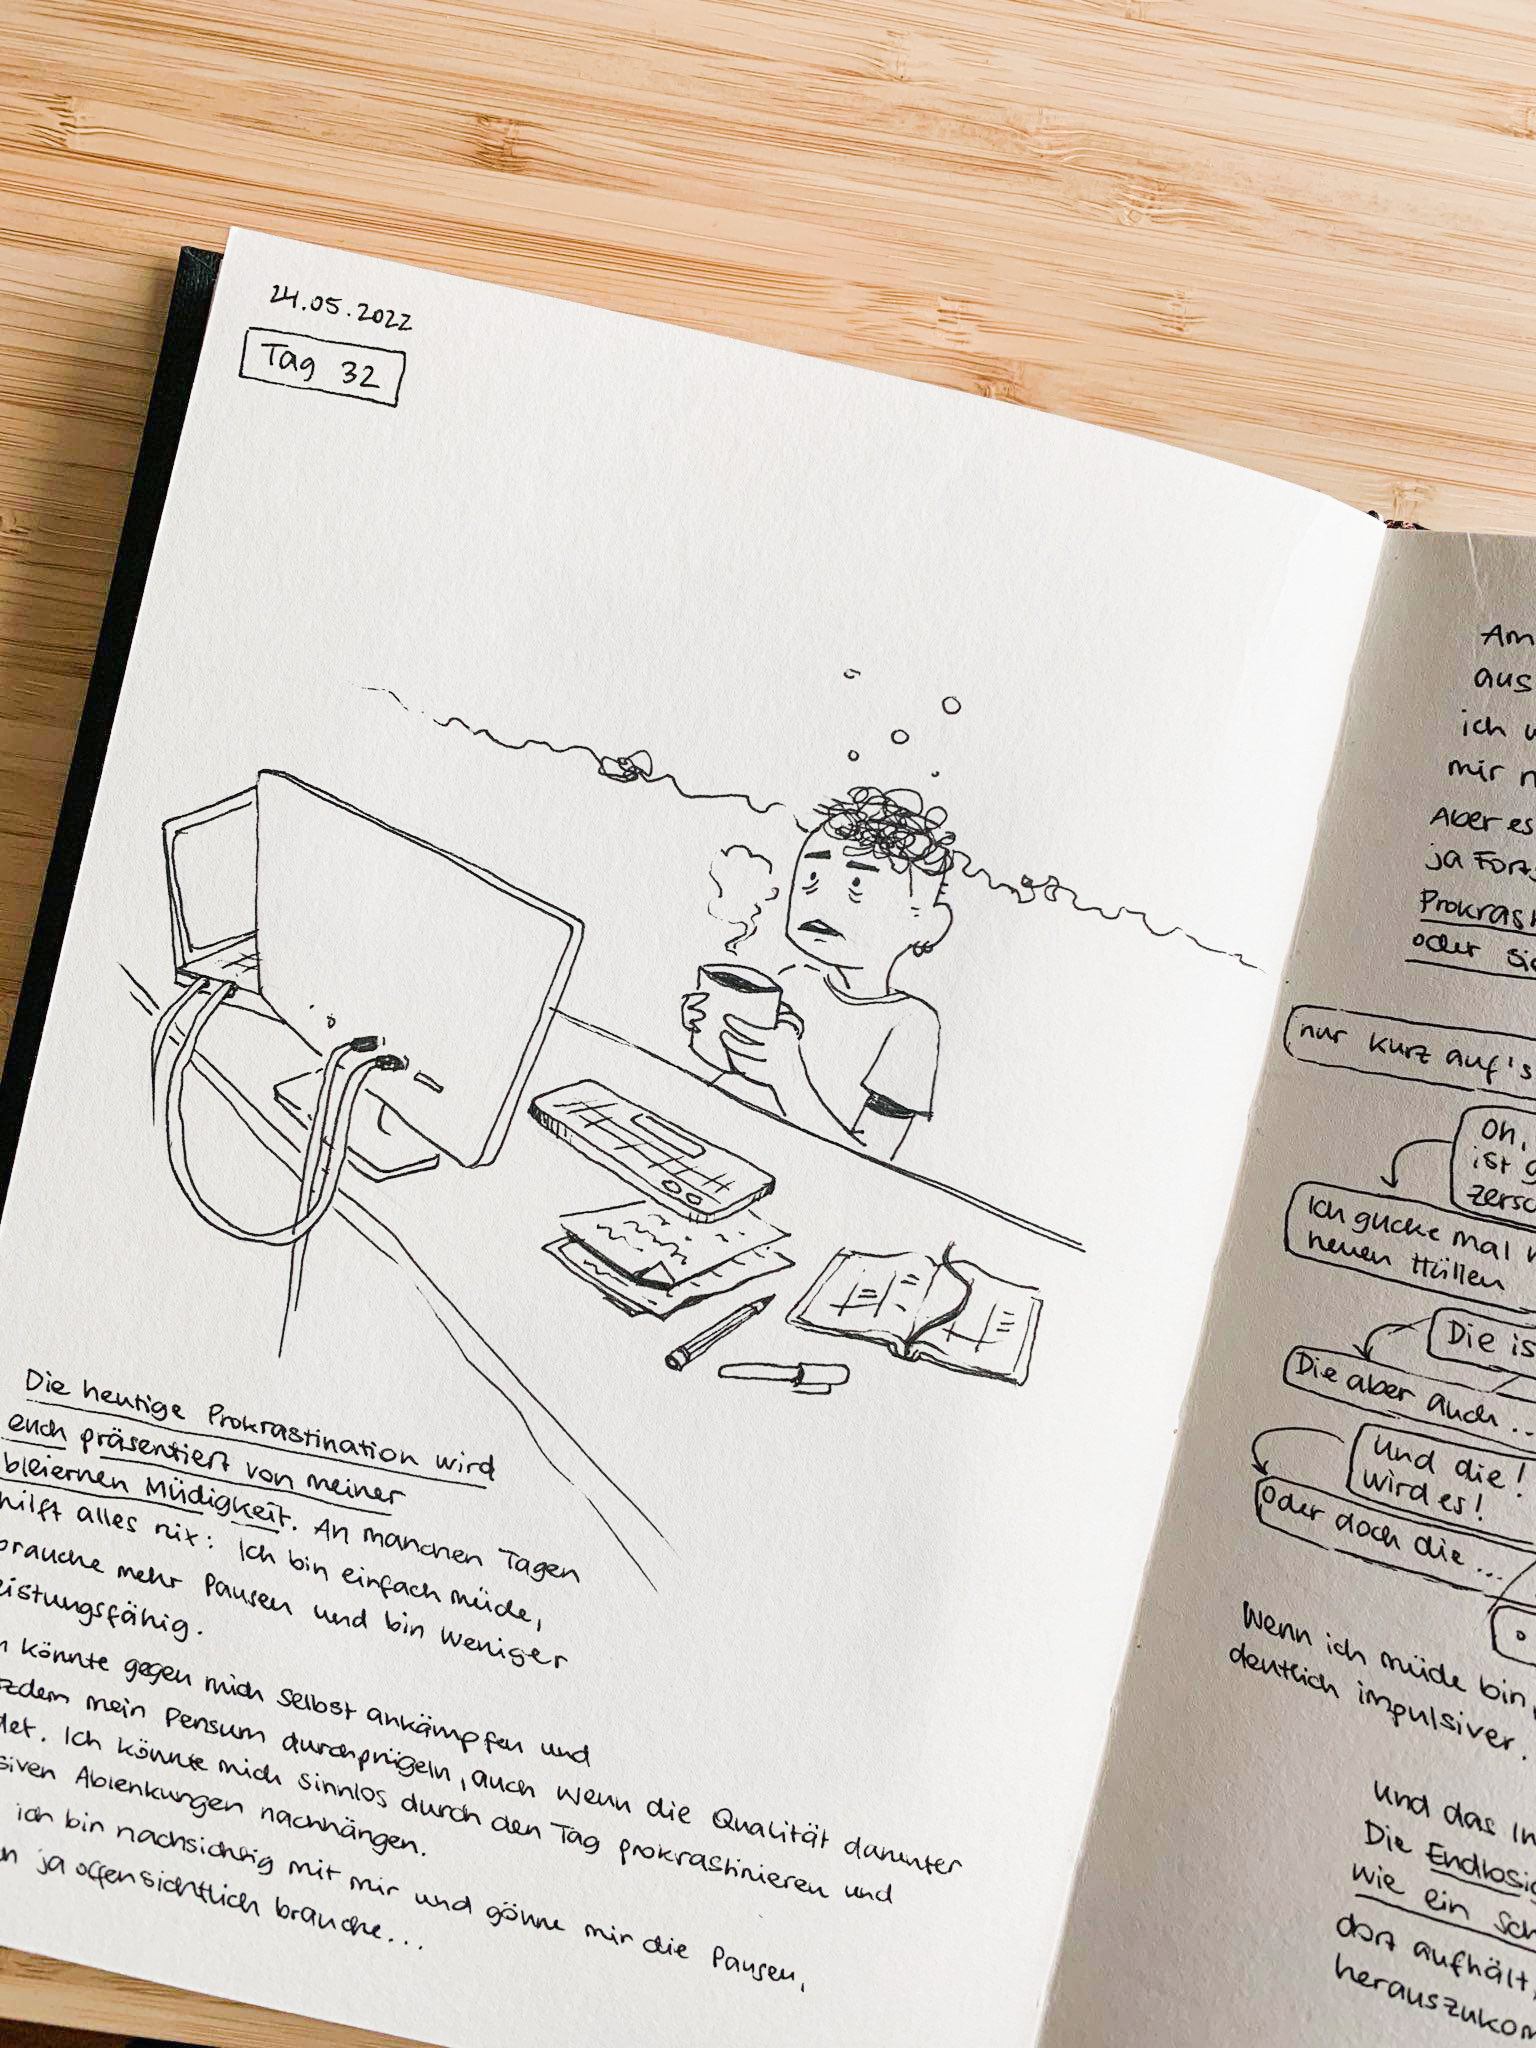 24.05.2022
Tag 32
Die heutige Prokrastination wird
euch präsentiert von meiner
bleiernen Müdigkeit. An manchen Tagen
hilft alles nix: Ich bin einfach müde,
brauche mehr Pausen und bin weniger
eistungsfähig.
könnte gegen mich selbst ankämpfen und
zdem mein Pensum durchprügeln, auch wenn die Qualität darunter
det. Ich könnte mich sinnlos durch den Tag prokrastinieren und
siven Ablenkungen nachhängen.
ich bin nachsichtig mit mir und gönne mir die Pausen,
n ja offensichtlich brauche...
Am
aus
ich
mir
Aber es
ja Forts
Prokras
oder sic
nur kurz auf's
Oh,
ist g
zersc
Ich gucke mal
neuen Hüllen
Die is
Die aber auch...
Und die!
wird es!
Oder doch die...
Wenn ich müde bin,
deutlich impulsiver.
Und das In
Die Endlosig
wie ein Sch
dort aufhält,
herauszukom